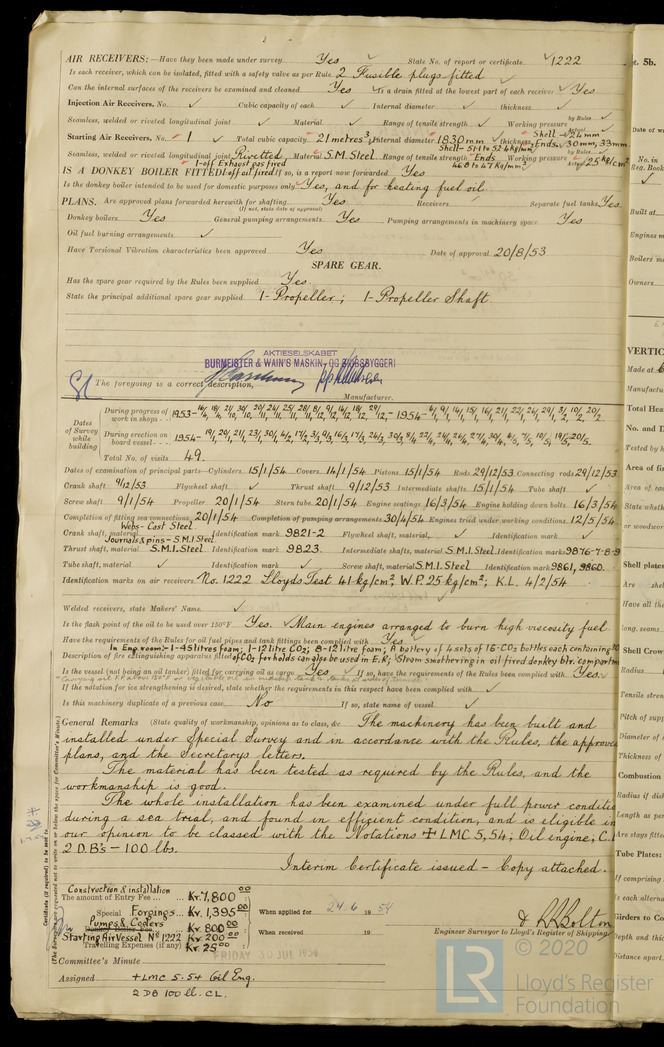 AIR RECEIVERS:—Have they been made under survey Yes ✓ State No. of report or certificate ✓ 1222
Is each receiver, which can be isolated, fitted with a safety valve as per Rule 2 Fusible plugs fitted ✓
Can the internal surfaces of the receivers be examined and cleaned Yes ✓ Is a drain fitted at the lowest part of each receiver ✓ Yes
Injection Air Receivers, No. ✓ Cubic capacity of each ✓ Internal diameter ✓ thickness ✓
Seamless, welded or riveted longitudinal joint ✓ Material ✓ Range of tensile strength ✓ Working pressure by Rules ✓ Actual
Starting Air Receivers, No. 1 ✓ Total cubic capacity 21 metres³ Internal diameter 1830 mm ✓ thickness Shell — 24 mm Ends. 30 mm, 33 mm
Seamless, welded or riveted longitudinal joint Rivetted Material S.M. Steel Range of tensile strength Shell — 51.1 to 52.4 kg/mm² Ends 46.0 to 47 kg/mm² Working pressure by Rules Actual 25 kg/cm²
IS A DONKEY BOILER FITTED? 1-off Exhaust gas fired 1-off oil fired If so, is a report now forwarded Yes
Is the donkey boiler intended to be used for domestic purposes only Yes, and for heating fuel oil.
PLANS. Are approved plans forwarded herewith for shafting Yes Receivers Separate fuel tanks Yes
(If not, state date of approval)
Donkey boilers Yes General pumping arrangements Yes Pumping arrangements in machinery space Yes
Oil fuel burning arrangements ✓
Have Torsional Vibration characteristics been approved Yes Date of approval 20/8/53
SPARE GEAR.
Has the spare gear required by the Rules been supplied Yes.
State the principal additional spare gear supplied 1- Propeller; 1- Propeller Shaft.
AKTIESELSKABET
BURMEISTER & WAIN'S MASKIN- OG SKIBSBYGGERI
The foregoing is a correct description,
Manufacturer.
Dates of Survey while building
During progress of work in shops - - 1953-
During erection on board vessel - - - 1954-
Total No. of visits 49.
Dates of examination of principal parts—Cylinders 15/1/54 Covers 14/1/54 Pistons 15/1/54 Rods 29/12/53 Connecting rods 29/12/53
Crank shaft 9/12/53 Flywheel shaft ✓ Thrust shaft 9/12/53 Intermediate shafts 15/1/54 Tube shaft ✓
Screw shaft 9/1/54 Propeller 20/1/54 Stern tube 20/1/54 Engine seatings 16/3/54 Engine holding down bolts 16/3/54
Completion of fitting sea connections 20/1/54 Completion of pumping arrangements 30/4/54 Engines tried under working conditions 12/5/54
Crank shaft, material Webs- Cast Steel Journals & pins - S.M.I Steel Identification mark 9821-2 Flywheel shaft, material, ✓ Identification mark ✓
Thrust shaft, material S.M.I. Steel Identification mark 9823 Intermediate shafts, material S.M.I. Steel Identification marks 9876-7-8-9
Tube shaft, material ✓ Identification mark ✓ Screw shaft, material S.M.I. Steel Identification mark 9861, 9860.
Identification marks on air receivers No. 1222 Lloyds Test 41 kg/cm² W.P. 25 kg/cm²; K.L. 4/2/54
Welded receivers, state Makers' Name ✓
Is the flash point of the oil to be used over 150°F Yes. ✓ Main engines arranged to burn high viscosity fuel
Have the requirements of the Rules for oil fuel pipes and tank fittings been complied with Yes.
In Eng. room:- 1-45 litres foam; 1-12 litre CO2; 8-12 litre foam; A battery of 4 sets of 16-CO2 bottles each containing 30
Description of fire extinguishing apparatus fitted of CO2 for holds can also be used in E.R; Steam smothering in oil fired donkey blr. compartm
Is the vessel (not being an oil tanker) fitted for carrying oil as cargo Yes ✓ If so, have the requirements of the Rules been complied with Yes. ✓
If the notation for ice strengthening is desired, state whether the requirements in this respect have been complied with ✓
Is this machinery duplicate of a previous case No If so, state name of vessel ✓
General Remarks (State quality of workmanship, opinions as to class, &c. The machinery has been built and
installed under Special Survey and in accordance with the Rules, the approve
plans, and the Secretarys letters.
The material has been tested as required by the Rules, and the
workmanship is good.
The whole installation has been examined under full power conditio
during a sea trial, and found in efficient condition, and is eligible in
our opinion to be classed with the Notations ✠ LMC 5,54; Oil engine; C.L
2 D.B's — 100 lbs.
Interim Certificate issued — Copy attached.
Construction & installation
The amount of Entry Fee ... Kr. 7,800 00
Special Forgings... Kr. 1,395 00
Pumps & Coolers Kr. 800 00
Starting Air Vessel No 1222 Kr 200 00
Travelling Expenses (if any) Kr. 25 00
When applied for 24.6 19 54
When received 19
Engineer Surveyor to Lloyd's Register of Shipping
Committee's Minute FRIDAY 30 JUL 1954
Assigned +LMC 5.54 Oil Eng.
2 DB 100 lb. CL.
Certificate (if required) to be sent to
(The Surveyors are requested not to write on or below the space for Committee's Minute.)
© 2020
LR
Lloyd's Register
Foundation
5b.
Date of w
No. in
Reg. Book
Built at
Engines m
Boilers m
Owners
VERTIC
Made at
Manufactu
Total Hea
No. and D
Tested by h
Area of fi
Area of ea
State wheth
or woodwor
Shell plates
Are shel
Have all the
long. seams
Shell Crow
Radius
Tensile stren
Pitch of sup
Diameter of
Thickness of
Combustion
Radius if dish
Length as per
Are stays fitte
Tube Plates:
If comprising
Is each alterna
Girders to Co
Depth and thic
Distance apart